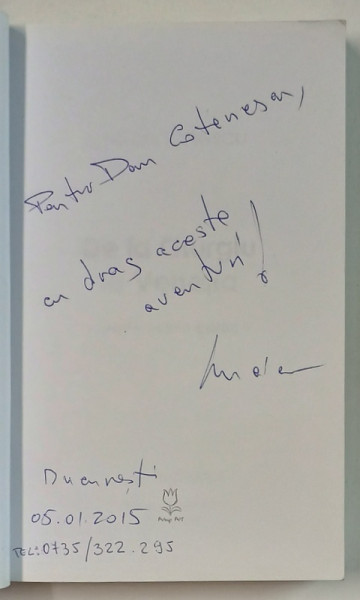 Pentru Dan Cotenescu,
cu drag aceste
aventuri!
București
05.01.2015
TEL: 0735/322.295